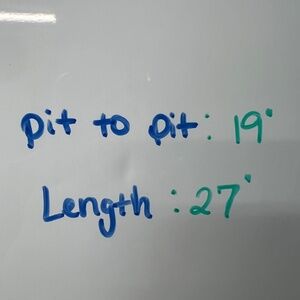 pit to pit: 19"
Length: 27"